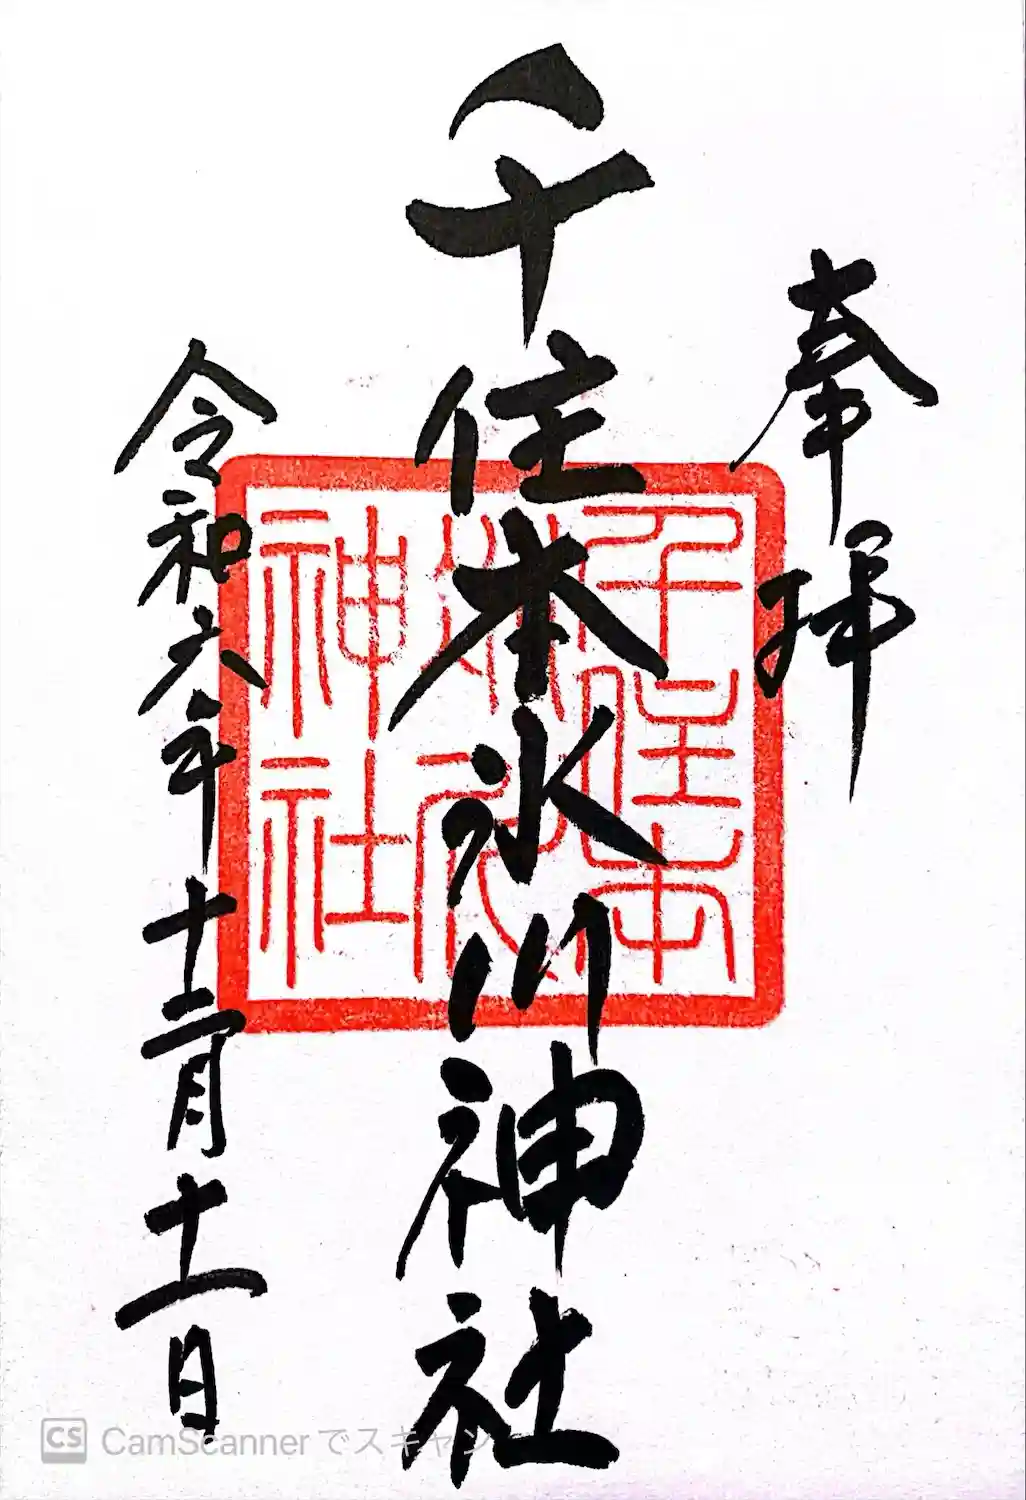 奉拝
千住本氷川神社
千住本
氷川
神社
令和六年十二月十一日
CS CamScannerでスキャン